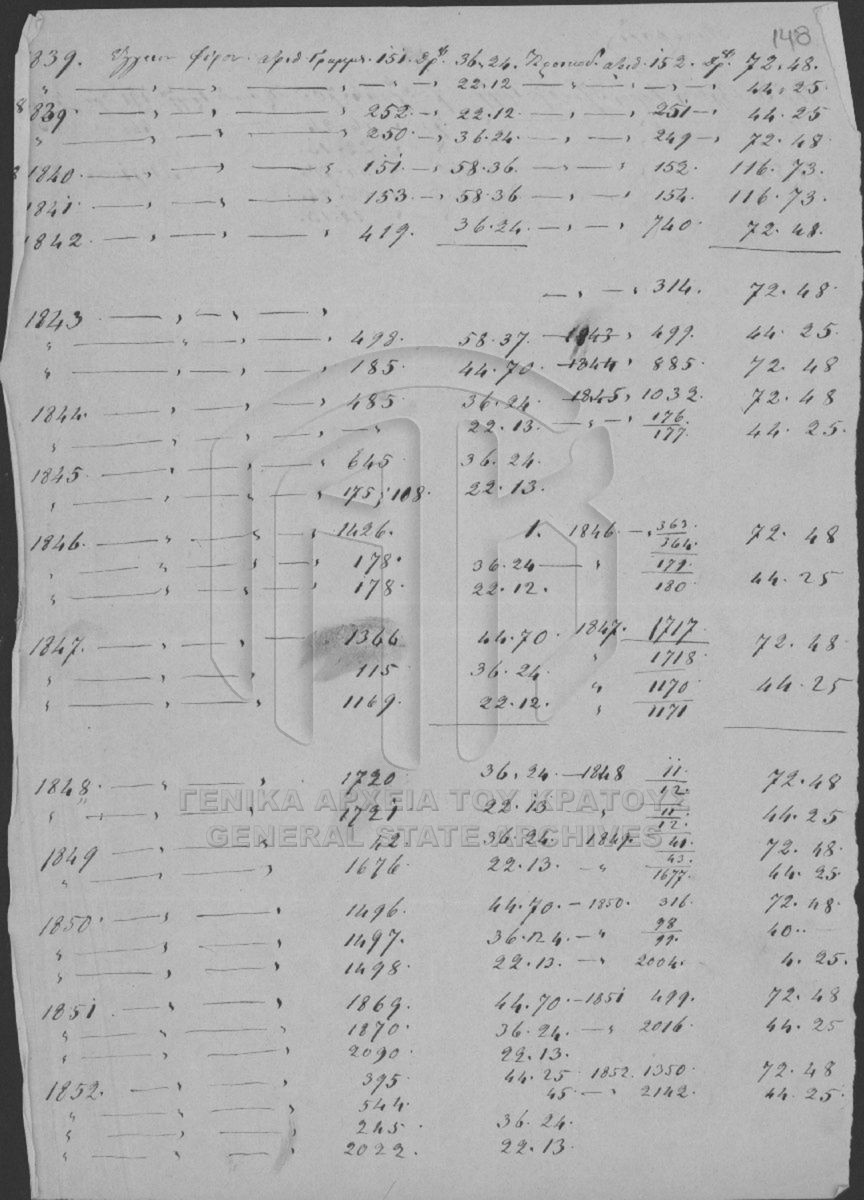 148
1839. Έγγειον φόρον αριθ. Γραμμ. 151. Δρ. 36.24. αριθ. 152. Δρ. 72.48.
" — , — , — , — , 22.12 — , — , — , 44.25
1839. — , — , — 252. — , 22.12. — , — , 251 — , 44.25
" — , — , — 250. — , 36.24. — , — , 249 — , 72.48
1840. — , — , — , 151. — , 58.36. — , — , 152. 116.73.
1841. — , — , — , 153. — , 58.36 — , — , 154. 116.73.
1842. — , — , — , 419. 36.24. — , — , 740. 72.48.
— , — , 314. 72.48.
1843 — , — , — ,
" — " — , — , 498. 58.37. — 1843 , 499. 44.25.
" — , — , — , 185. 44.70. — 1844 , 885. 72.48
1844. — , — , — , 485. 36.24. — 1845 , 1032. 72.48
" — , — , — , — " 22.13. — " — , 176. 177. 44.25.
1845. — , — , — , 645 36.24.
" — , — , — , 175 , 108. 22.13.
1846. — " — " — , 1426. 1. 1846 — , 363. 364. 72.48
" — " — " — , 178. 36.24 — " 179.
" — , — , — , 178. 22.12. 180 44.25
1847. — , — , — 1366 44.70. 1847. 1717 72.48
" — , — , — 115 36.24. " 1718 44.25
" — , — , 1169. 22.12. " 1170
" 1171
1848. — , — , 1720 36.24. — 1848 11. 12. 72.48
" — , — , 1721 22.13 — " 11. 12. 44.25
1849 — , — , 42 36.24 1849. 41. 72.48.
" — , — , 1676. 22.13. — " 43. 1677. 44.25
1850. — , — , 1496. 44.70. — 1850. 316. 72.48.
" — , — , 1497. 36.24. — " 98 99. 40..
" — , — , 1498. 22.13. — " 2004. 4.25.
1851 — , — , 1869. 44.70. — 1851 499. 72.48
" — , — , 1870. 36.24. — " 2016. 44.25
" — , — , 2090. 22.13.
1852. — , — , 395 44.25 1852. 1350. 72.48
" — , — , 544. 45. — " 2142. 44.25.
" — , — , 245 36.24.
" — , — , 2022. 22.13.
ΓΕΝΙΚΑ ΑΡΧΕΙΑ ΤΟΥ ΚΡΑΤΟΥΣ
GENERAL STATE ARCHIVES